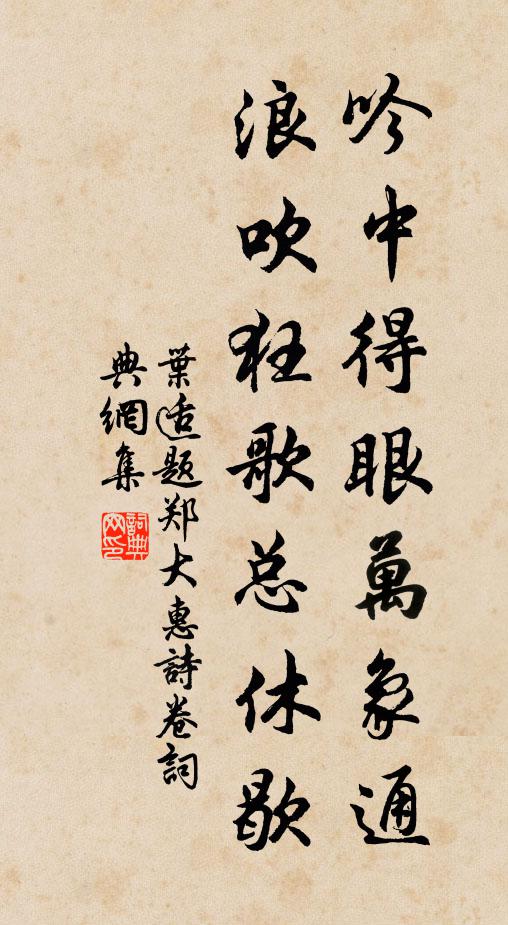 吟中得眼萬象通
浪吹狂歌总休歇
葉适题郑大惠詩卷詞
典網集
詞典
网印